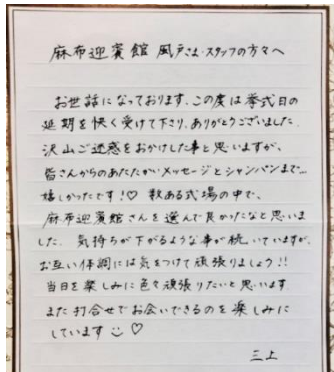 麻布迎賓館 風戸さま・スタッフの方々へ
お世話になっております。この度は挙式日の
延期を快く受けて下さり、ありがとうございました。
沢山ご迷惑をおかけした事と思いますが、
皆さんからのあたたかいメッセージとシャンパンまで…
嬉しかったです!♡ 数ある式場の中で、
麻布迎賓館さんを選んで良かったなと思いま
した。気持ちが下がるような事が続いていますが、
お互い体調には気をつけて頑張りましょう!!
当日を楽しみに色々頑張りたいと思います
また打合せでお会いできるのを楽しみに
しています☺♡
三上